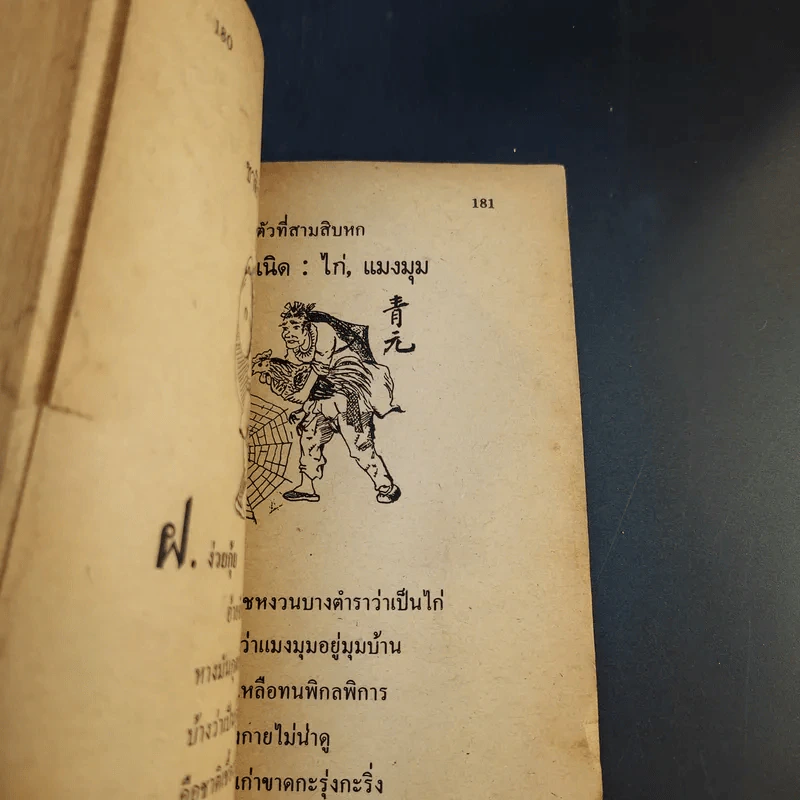 180
ฝ. ง่วยกุ้ย
181
ตัวที่สามสิบหก
เนิด : ไก่, แมงมุม
青
元
ชหงวนบางตำราว่าเป็นไก่
ว่าแมงมุมอยู่มุมบ้าน
หลือทนพิกลพิการ
กายไม่น่าดู
เก่าขาดกะรุ่งกะริ่ง